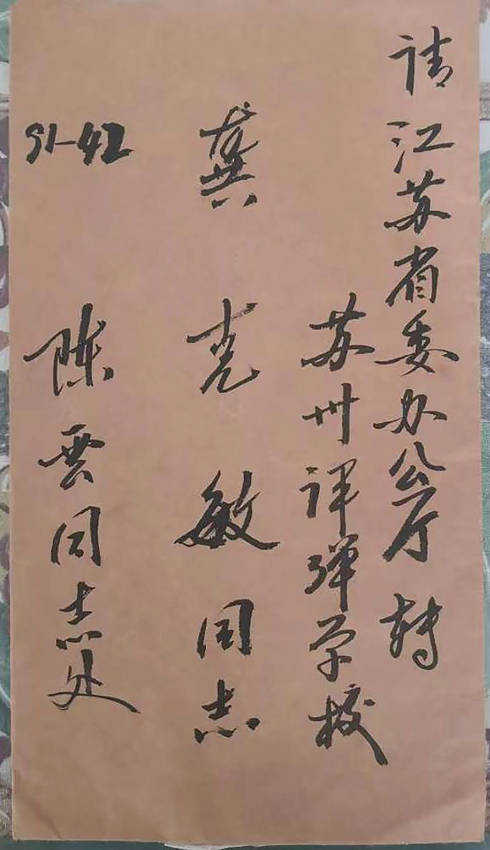 请江苏省委办公厅转
苏州评弹学校
龚克敏同志
91-42
陈云同志处